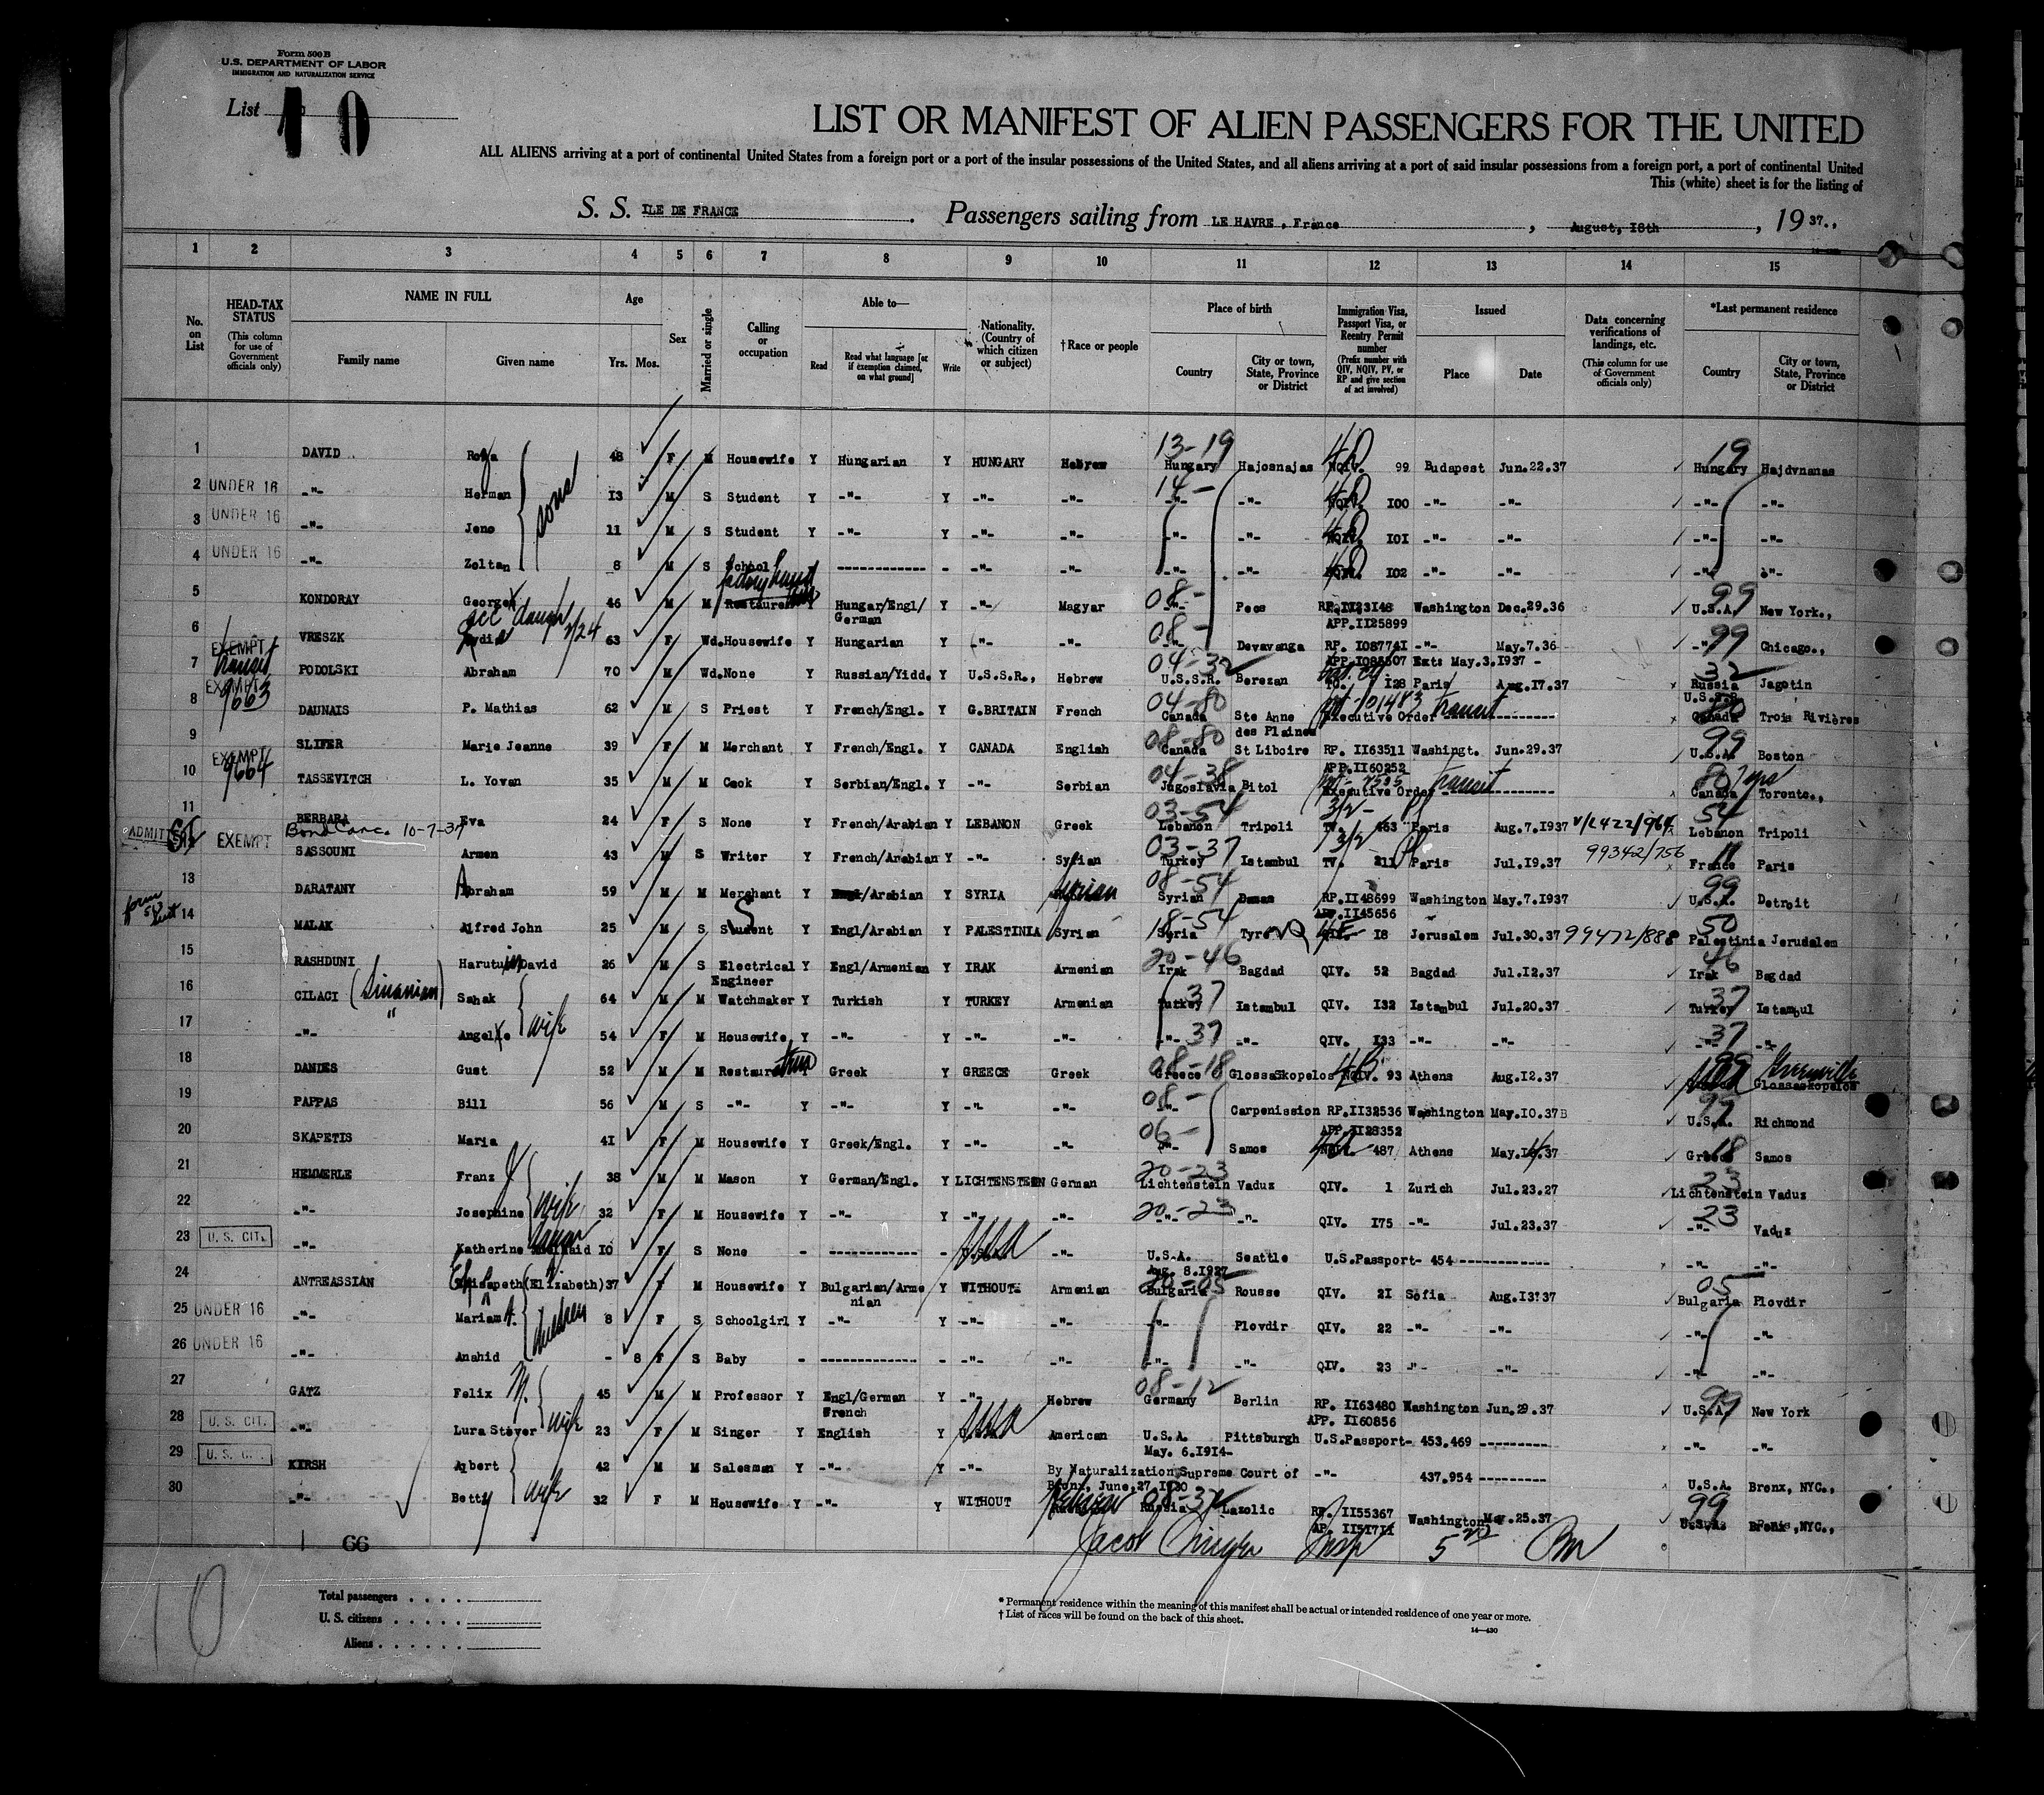 Form 500 B
U.S. DEPARTMENT OF LABOR
IMMIGRATION AND NATURALIZATION SERVICE
List 10
LIST OR MANIFEST OF ALIEN PASSENGERS FOR THE UNITED
ALL ALIENS arriving at a port of continental United States from a foreign port or a port of the insular possessions of the United States, and all aliens arriving at a port of said insular possessions from a foreign port, a port of continental United
This (white) sheet is for the listing of
S. S. ILE DE FRANCE . Passengers sailing from LE HAVRE, France , August, 18th , 19 37.,
1 2 3 4 5 6 7 8 9 10 11 12 13 14 15
No. on List
HEAD-TAX STATUS (This column for use of Government officials only)
NAME IN FULL Family name Given name
Age Yrs. Mos.
Sex
Married or single
Calling or occupation
Able to— Read Read what language [or if exemption claimed, on what ground] Write
Nationality. (Country of which citizen or subject)
†Race or people
Place of birth Country City or town, State, Province or District
Immigration Visa, Passport Visa, or Reentry Permit number (Prefix number with QIV, NQIV, PV, or RP and give section of act involved)
Issued Place Date
Data concerning verifications of landings, etc. (This column for use of Government officials only)
*Last permanent residence Country City or town, State, Province or District
1 DAVID Roza 48 F M Housewife Y Hungarian Y HUNGARY Hebrew 13-19 Hungary Hajosnajas NQIV. 99 Budapest Jun.22.37 19 Hungary Hajdvnanas
2 UNDER 16 -"- Herman sons 13 M S Student Y -"- Y -"- -"- 14- -"- -"- NQIV. 100 -"- -"- -"- -"-
3 UNDER 16 -"- Jeno 11 M S Student Y -"- Y -"- -"- -"- -"- NQIV. 101 -"- -"- -"- -"-
4 UNDER 16 -"- Zoltan 8 M S School ------------ - -"- -"- -"- -"- 102 -"- -"- -"- -"-
5 KONDORAY George 46 M M factory hand Y Hungar/Engl/ German Y -"- Magyar 08- -"- Pecs RP.1123148 APP.1125899 Washington Dec.29.36 99 U.S.A. New York.,
6 VRESZK Lydia 63 F Wd. Housewife Y Hungarian Y -"- -"- 08- -"- Devavanga RP. 1087741 -"- May.7.36 99 -"- Chicago.,
7 EXEMPT transit PODOLSKI Abraham 70 M Wd. None Y Russian/Yidd. Y U.S.S.R., Hebrew 04-32 U.S.S.R. Berezan 128 Paris Aug.17.37 32 Russia U.S.S.R. Jagotin
Ext: May.3.1937 -
8 EXEMPT 9663 DAUNAIS P. Mathias 62 M S Priest Y French/Engl. Y G.BRITAIN French 04-80 Canada Ste Anne des Plaines Executive Order transit ---------- Canada Trois Rivières
9 SLIFER Marie Jeanne 39 F M Merchant Y French/Engl. Y CANADA English 08-80 Canada St Liboire RP. 1163511 APP.1160252 Washingt. Jun.29.37 99 U.S.A. Boston
10 EXEMPT 9664 TASSEVITCH L. Yovan 35 M M Cook Y Serbian/Engl. Y -"- Serbian 04-38 Jugoslavia Bitol Executive Order transit ------------ 80 Canada Toronto.,
11 BERBARA Eva 24 F S None Y French/Arabian Y LEBANON Greek 03-54 Lebanon Tripoli 3/2- TV. 453 Paris Aug.7.1937 54 Lebanon Tripoli
ADMITTED EXEMPT Bond Canc. 10-7-37
SASSOUNI Armen 43 M S Writer Y French/Arabian Y -"- Syrian 03-37 Turkey Istambul 3/2 TV. 211 Paris Jul.19.37 99342/756 France Paris
13 DARATANY Abraham 59 M M Merchant Y /Arabian Y SYRIA Syrian 08-54 Syrian RP.1148699 APP.1145656 Washington May.7.1937 99 U.S.A. Detroit
14 MALAK Alfred John 25 M S Student Y Engl/Arabian Y PALESTINIA Syrian 18-54 Syria Tyr 18 Jerusalem Jul.30.37 99472/888 50 Palestinia Jerusalem
15 RASHDUNI Harutuin David 26 M S Electrical Engineer Y Engl/Armenian Y IRAK Armenian 20-46 Irak Bagdad QIV. 52 Bagdad Jul.12.37 46 Irak Bagdad
16 CILACI (Sinanian) Sahak 64 M M Watchmaker Y Turkish Y TURKEY Armenian 37 Turkey Istambul QIV. 132 Istambul Jul.20.37 37 Turkey Istambul
17 -"- " Angele wife 54 F M Housewife Y -"- Y -"- -"- 37 -"- -"- QIV. 133 -"- -"- 37 -"- -"-
18 DANDES Gust 52 M M Restaur Y Greek Y GREECE Greek 08-18 Greece GlossaSkopelos NQIV. 93 Athens Aug.12.37 99 Greenville Glossaskopelos
19 PAPPAS Bill 56 M S -"- Y -"- Y -"- -"- 08- -"- Carpenission RP.1132536 APP.1128352 Washington May.10.37 99 U.S.A. Richmond
20 SKAPETIS Maria 41 F M Housewife Y Greek/Engl. Y -"- -"- 06- -"- Samos 487 Athens May.14.37 18 Greece Samos
21 HEMMERLE Franz J 38 M M Mason Y German/Engl. Y LICHTENSTEIN German 20-23 Lichtenstein Vaduz QIV. 1 Zurich Jul.23.27 23 Lichtenstein Vaduz
22 -"- Josephine wife 32 F M Housewife Y -"- Y -"- -"- 20-23 -"- -"- QIV. 175 -"- Jul.23.37 23 -"- Vaduz
23 U. S. CIT. -"- Katherine 10 F S None - ------------ - USA -"- U.S.A. Aug. 8.1927 Seattle U.S.Passport- 454 ------------- -"- -"-
24 ANTREASSIAN (Elizabeth) 37 F M Housewife Y Bulgarian/Arme nian Y WITHOUT Armenian 20-05 Bulgaria Rousse QIV. 21 Sofia Aug.13.37 05 Bulgaria Plovdir
25 UNDER 16 -"- Mariam A. children 8 F S Schoolgirl Y -"- Y -"- -"- -"- Plovdir QIV. 22 -"- -"- -"- -"-
26 UNDER 16 -"- Anahid - 8 F S Baby - ------------- - -"- -"- -"- -"- QIV. 23 -"- -"- -"- -"-
27 GATZ Felix M. 45 M M Professor Y Engl/German French Y -"- Hebrew 08-12 Germany Berlin RP. 1163480 APP. 1160856 Washington Jun.29.37 99 U.S.A. New York
28 U. S. CIT. -"- Lura Stover wife 23 F M Singer Y English Y USA American U.S.A. May. 6.1914- Pittsburgh U.S.Passport- 453.469 --------- -"- -"-
29 U. S. CIT. KIRSH Albert 42 M M Salesman Y -"- Y -"- By Naturalization Supreme Court of Bronx, June.27.1930 -"- 437.954 --------- U.S.A. Bronx, NYC.,
30 -"- Betty wife 32 F M Housewife Y -"- Y WITHOUT Hebrew 08-32 Russia Lazolic RP. 1155367 AP. 1151711 Washington Mar.25.37 99 U.S.A. Bronx ,NYC.,
66
Jacob Insp 5
10
Total passengers . . . .
U. S. citizens . . . . .
Aliens . . . . . .
* Permanent residence within the meaning of this manifest shall be actual or intended residence of one year or more.
† List of races will be found on the back of this sheet.
14—430